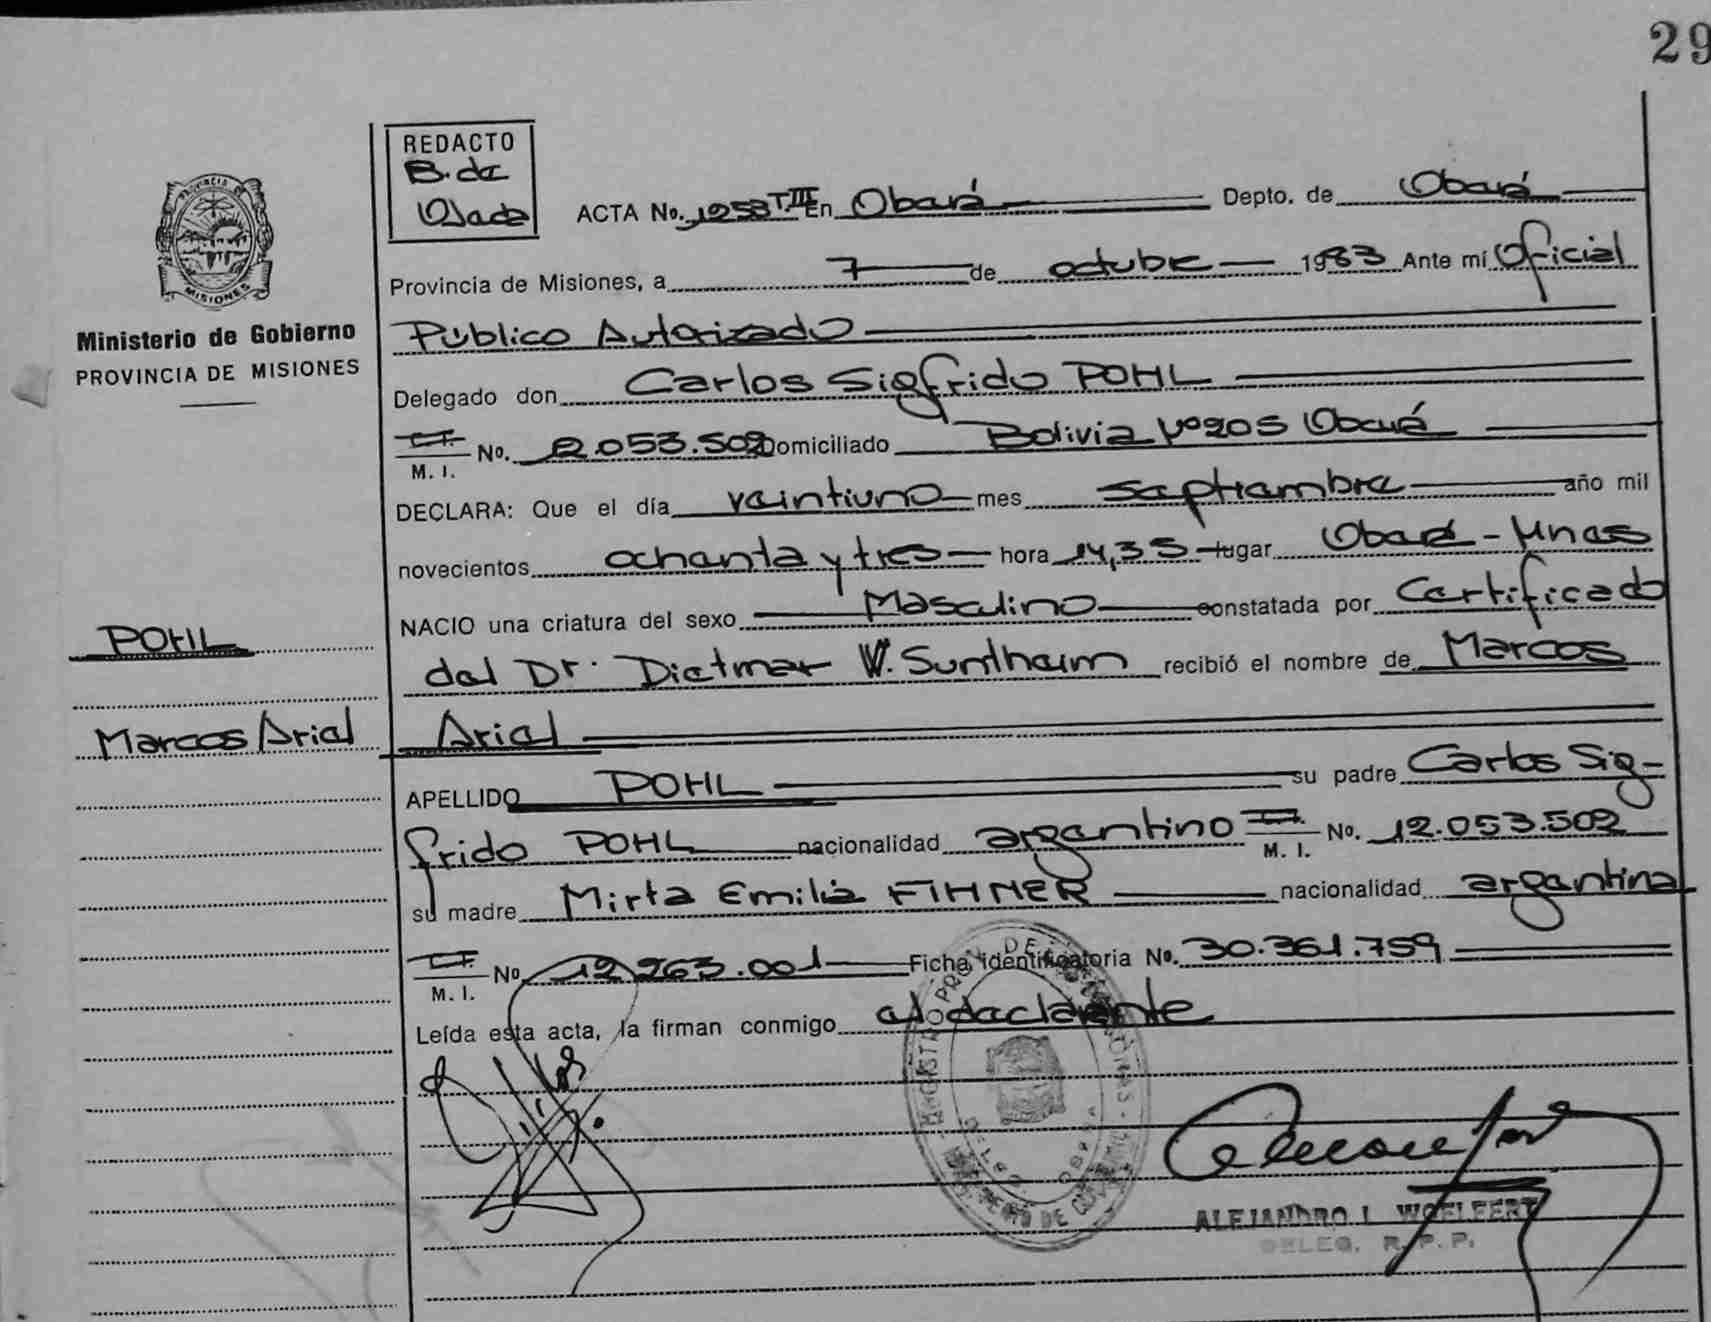 29
REDACTO
B. de
ACTA No. 1258 T.III En Oberá Depto. de Oberá
Provincia de Misiones, a 7 de octubre 1983 Ante mí Oficial
Público Autorizado
MISIONES
Ministerio de Gobierno
PROVINCIA DE MISIONES
Delegado don Carlos Sigfrido POHL
C.I.
M. I. No. 12.053.502 Domiciliado Bolivia Nº 205 Oberá
DECLARA: Que el día veintiuno mes septiembre año mil
novecientos ochenta y tres hora 14,35 lugar Oberá - Mnes
NACIO una criatura del sexo Masculino constatada por Certificado
del Dr. Dietmar W. Sundheim recibió el nombre de Marcos
Ariel
POHL
Marcos Ariel
APELLIDO POHL su padre Carlos Sig-
frido POHL nacionalidad argentino C.I. M. I. No. 12.053.502
su madre Mirta Emilia FIHMER nacionalidad argentina
C.I. M. I. No 12.263.001 Ficha identificatoria No. 30.361.759
Leída esta acta, la firman conmigo el declarante
ALEJANDRO I. WOELFERT
DELEG. R. P. P.